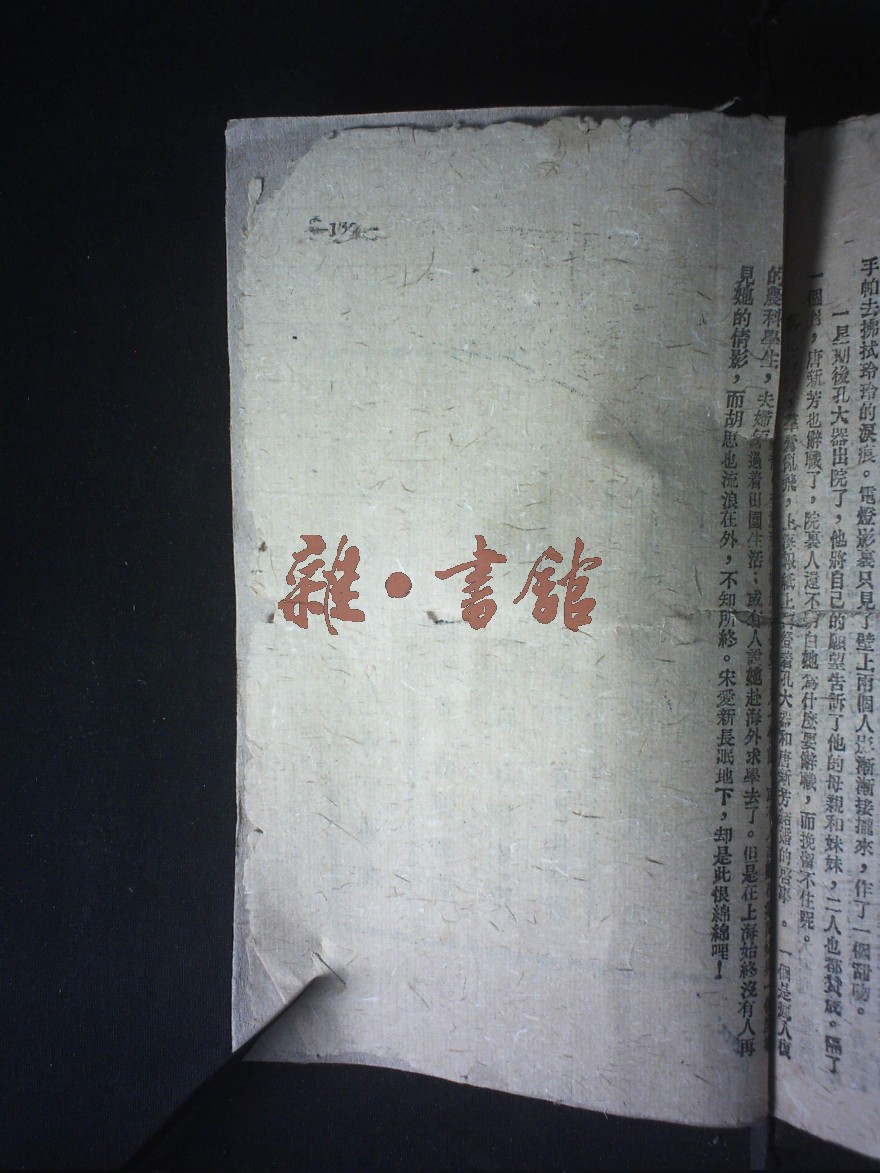 手帕去拂拭玲玲的淚痕。電燈影裏只見了壁上兩個人影漸漸接攏來，作了一個甜吻。
一星期後孔大器出院了，他將自己的願望告訴了他的母親和妹妹，二人也都贊成。隔了
一個，唐新芳也辭職了，院裏人還不明白她為什麽要辭職，而挽留不住呢。
上海報紙上登着孔大器和唐新芳結婚的啓事。一個是
的農科學生，夫婦過着田園生活；或有人說她赴海外求學去了。但是在上海始終沒有人再
見她的倩影，而胡思也流浪在外，不知所終。宋愛新長眠地下，却是此恨綿綿哩！
雜·書館